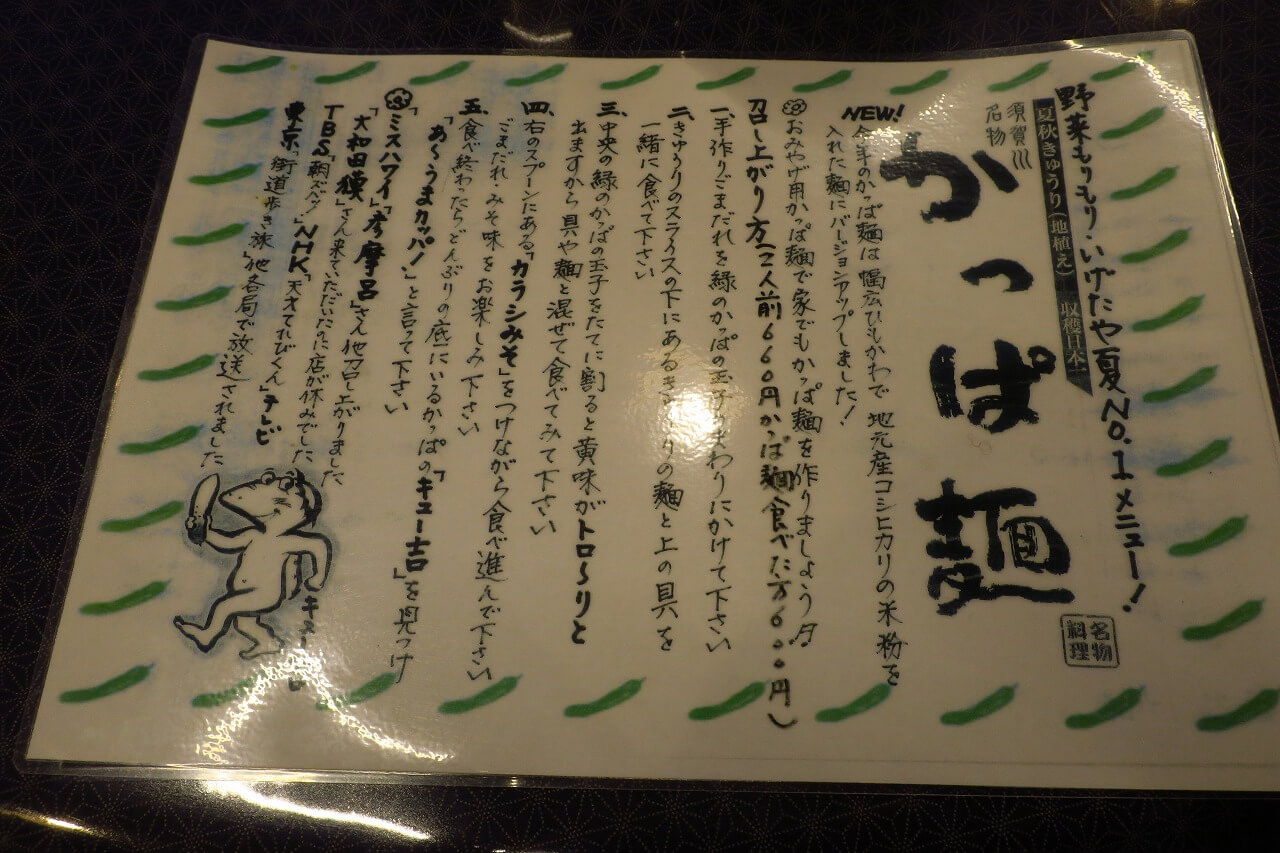 野菜もりもり、いげたや夏NO.1メニュー!
夏秋きゅうり(地植え) 収穫日本一
須賀川
名物
かっぱ麺
名物
料理
NEW!
今年のかっぱ麺は幅広ひもかわで地元産コシヒカリの米粉を
入れた麺にバージョンアップしました!
おみやげ用かっぱ麺で家でもかっぱ麺を作りましょう
召し上がり方(一人前660円かっぱ麺食べた方600円)
一、手作りごまだれを緑のかっぱの玉子のまわりにかけて下さい
二、きゅうりのスライスの下にあるきゅうりの麺と上の具を
一緒に食べて下さい
三、中央の緑のかっぱの玉子をたてに割ると黄味がトロ〜リと
出ますから具や麺と混ぜて食べてみて下さい
四、右のスプーンにある「カラシみそ」をつけながら食べ進んで下さい
ごまだれ・みそ味をお楽しみ下さい
五、食べ終わったらどんぶりの底にいるかっぱの「キュー吉」を見つけ
「あ〜うまカッパ!」と言って下さい
「ミスハワイ」「彦摩呂」さん他召し上がりました
「大和田獏」さん来ていただいたのに店が休みでした
TBS「朝ズバッ!」NHK「天才てれびくん」テレビ
東京「街道歩き旅」他各局で放送されました
キュー吉